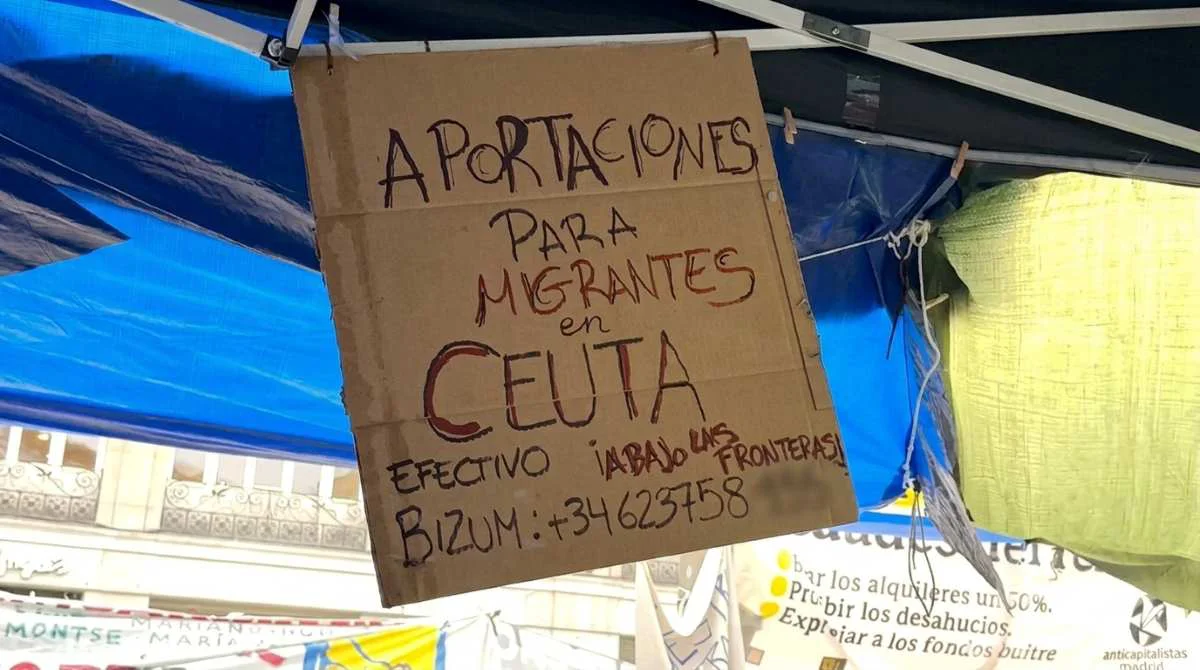 APORTACIONES
PARA
MIGRANTES
en
CEUTA
EFECTIVO ¡ABAJO LAS FRONTERAS!
BIZUM: +34623758
MONTSE
MARÍA
bar los alquileres un 50%.
Prohibir los desahucios.
Expropiar a los fondos buitre
anticapitalistas
madrid